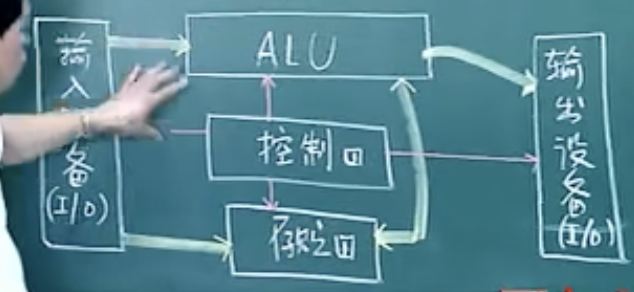 输入
备
(I/O)
ALU
控制
输出设备
(I/O)